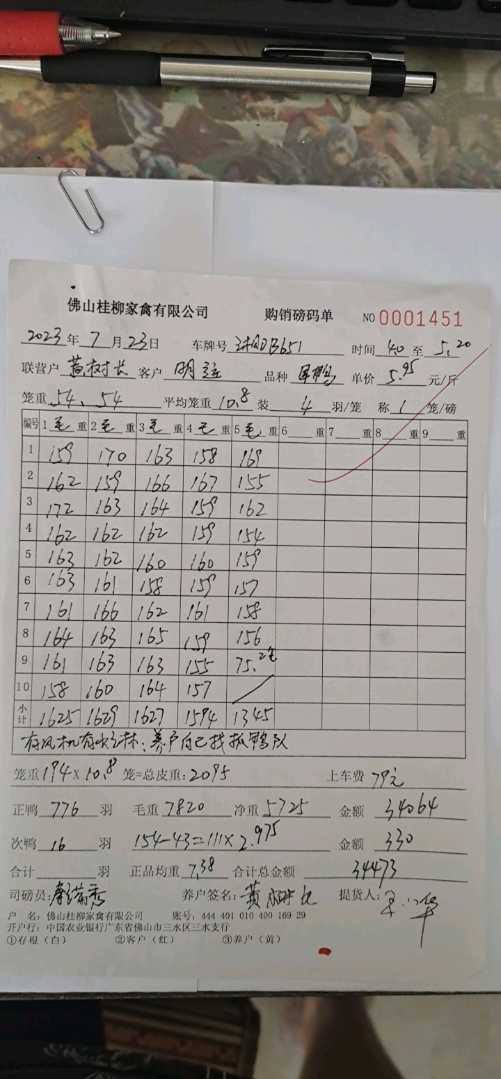 佛山桂柳家禽有限公司 购销磅码单 NO 0001451
2023 年 7 月 23 日 车牌号 B651 时间 4.0 至 5.20
联营户 黄树长 客户 明 品种 鸭 单价 5.95 元/斤
笼重 54、54 平均笼重 10.8 装 4 羽/笼 称 1 笼/磅
编号 1 毛 重 2 毛 重 3 毛 重 4 毛 重 5 毛 重 6 重 7 重 8 重 9 重
1 159 170 163 158 169
2 162 159 166 167 155
3 172 163 164 159 162
4 162 162 162 159 154
5 163 162 160 160 159
6 163 161 158 159 157
7 161 166 162 161 158
8 164 163 165 159 156
9 161 163 163 155 75.2笼
10 158 160 164 157
小计 1625 1629 1627 1594 1345
有风机有吹淋、养户自己找抓鸭队
笼重 194 X 10.8 笼=总皮重: 2095 上车费 79元
正鸭 776 羽 毛重 7820 净重 5725 金额 34064
次鸭 16 羽 154-43=111X2.975 金额 330
合计 羽 正品均重 7.38 合计总金额 34473
司磅员: 养户签名: 黄树长 提货人:
户 名: 佛山桂柳家禽有限公司 账号: 444 401 010 400 169 29
开户行: 中国农业银行广东省佛山市三水区三水支行
①存根(白) ②客户(红) ③养户(黄)